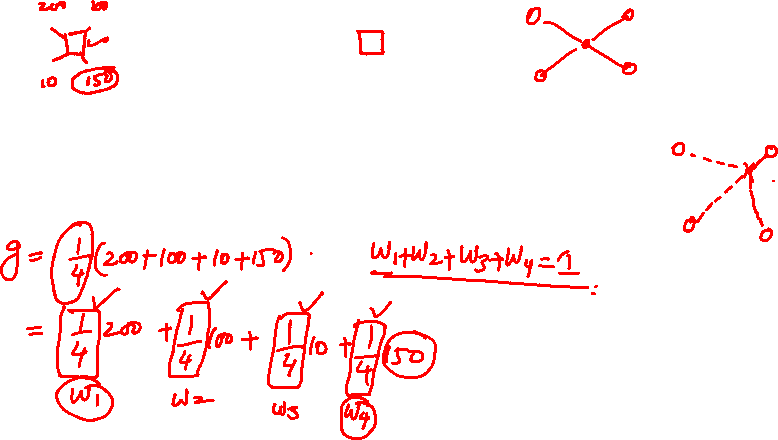 200 100
10 150
g = 1/4 (200+100+10+150) .
W1+W2+W3+W4=1
= 1/4 200 + 1/4 100 + 1/4 10 + 1/4 150
W1 W2 W3 W4